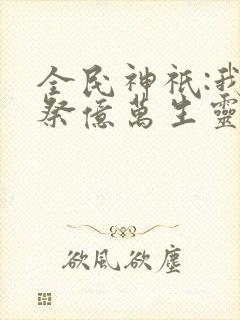 全民神祇:我
祭億萬生靈
欲風欲塵